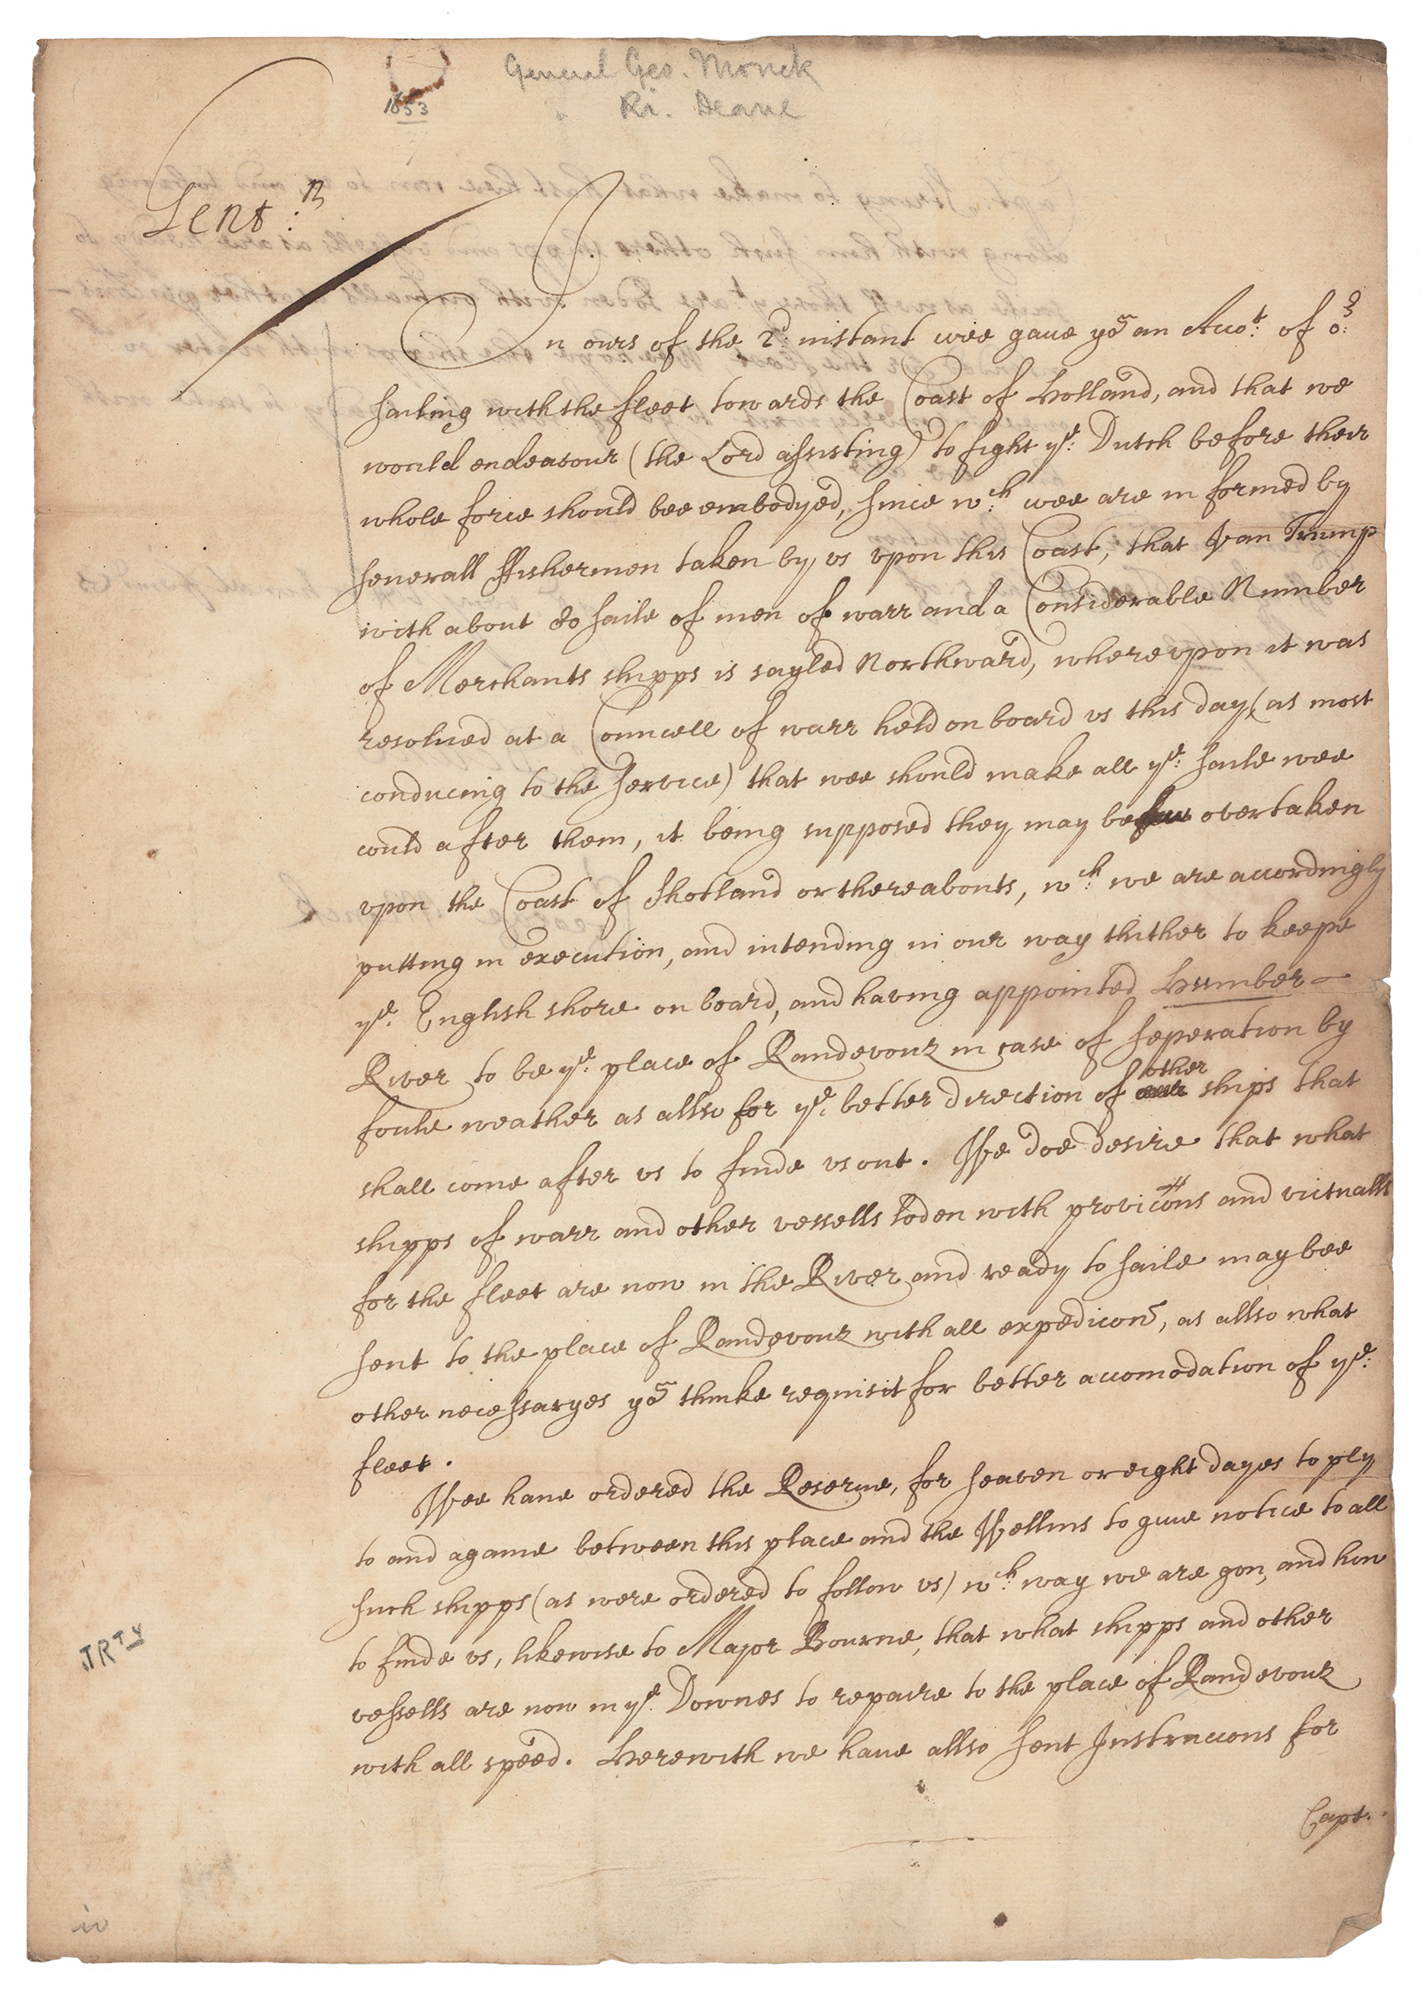 General Geo. Monck
1653
Ri. Deane
Gent:n
In ours of the 2d: instant wee gaue yo^u an Acco^t: of o^r:
sailing with the fleet towards the Coast of Holland, and that we
would endeauour (the Lord assisting) to fight y^e: Dutch before their
whole force should bee embodyed, since w^ch: wee are informed by
seuerall ffishermen taken by vs vpon this Coast, that Van Trump
with about 80 saile of men of warr and a Considerable Number
of Merchants shipps is sayled Northward, wherevpon it was
resolued at a Councell of warr held on board vs this day, (as most
conducing to the service) that wee should make all y^e: saile wee
could after them, it being supposed they may be overtaken
vpon the Coast of Shotland or thereabouts, w^ch: we are accordingly
putting in execution, and intending in our way thither to keepe
y^e: English shore on board, and having appointed Humber
River to be y^e: place of Randevouz in case of seperation by
foule weather as allso for y^e: better direction of other ships that
shall come after vs to finde vs out. We doe desire that what
shipps of warr and other vessells loden with provicõns and victualls
for the fleet are now in the River and ready to saile may bee
sent to the place of Randevouz with all expedicõn, as allso what
other necessaryes yo^u thinke requisit for better accomodation of y^e:
fleet.
Wee haue ordered the Reserue, for seaven or eight dayes to ply
to and againe between this place and the Wellins to giue notice to all
such shipps (as were ordered to follow vs) w^ch: way we are gon, and how
to finde vs, likewise to Major Bourne, that what shipps and other
vessells are now in y^e: Downes to repaire to the place of Randevouz
with all speed. Herewith we haue allso sent Instruccons for
Capt.
JRTY